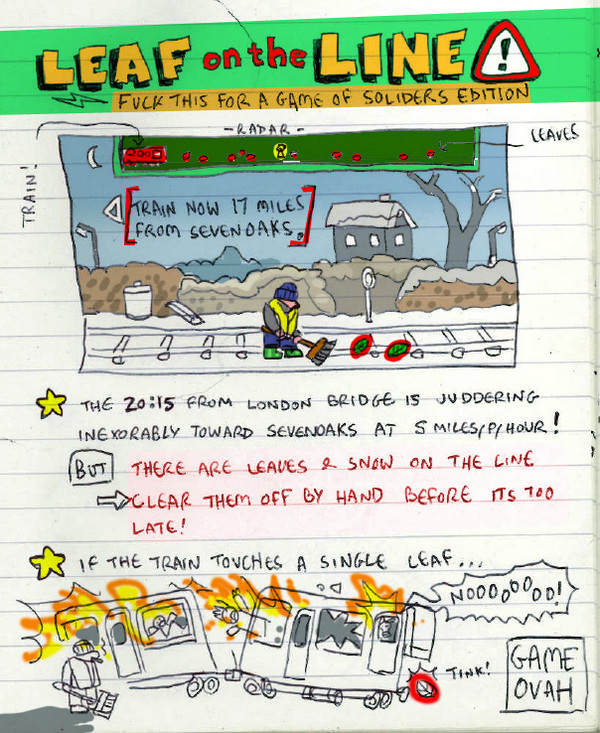 LEAF on the LINE !
FUCK THIS FOR A GAME OF SOLIDERS EDITION
- RADAR -
LEAVES
TRAIN!
TRAIN NOW 17 MILES
FROM SEVENOAKS.
THE 20:15 FROM LONDON BRIDGE IS JUDDERING
INEXORABLY TOWARD SEVENOAKS AT 5 MILES/P/HOUR!
BUT THERE ARE LEAVES & SNOW ON THE LINE
CLEAR THEM OFF BY HAND BEFORE ITS TOO
LATE!
IF THE TRAIN TOUCHES A SINGLE LEAF...
NOOOOOOOD!
TINK!
GAME
OVAH